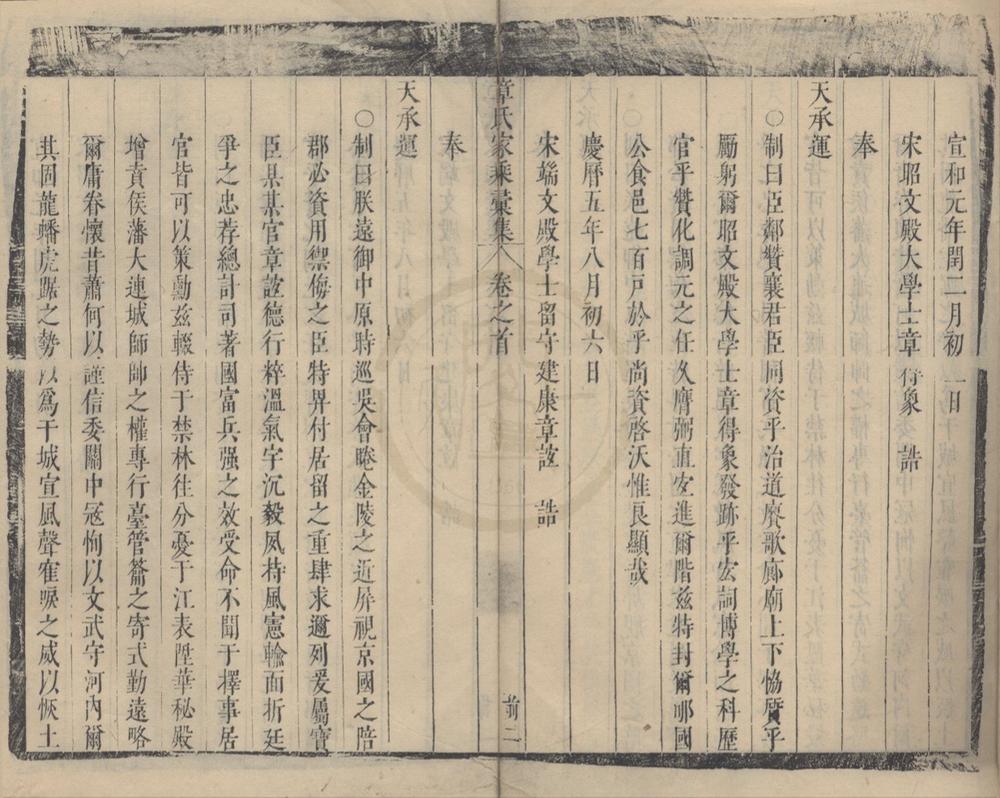 宣和元年閏二月初一日
宋昭文殿大學士章得象誥
奉
天承運
○制曰臣鄰贊襄君臣同資乎治道賡歌廊廟上下恊賡乎
勵躬爾昭文殿大學士章得象發跡乎宏詞博學之科歷
官乎贊化調元之任久膺弼直宜進爾階兹特封爾郇國
公食邑七百戸於乎尚資啓沃惟良顯哉
慶曆五年八月初六日
宋端文殿學士留守建康章誼誥
章氏家乘彚集 卷之首 前二
奉
天承運
○制曰朕遠御中原時巡吳會睠金陵之近屏視京國之陪
郡必資用禦侮之臣特畀付居留之重肆求邇列爰屬寶
臣具某官章誼德行粹溫氣宇沉毅夙持風憲輸面折廷
爭之忠荐總計司著國富兵强之效受命不聞于擇事居
官皆可以策勳兹輟侍于禁林往分憂于江表陞華秘殿
增賁侯藩大連城師帥之權專行臺管籥之寄式勤遠略
爾庸眷懷昔蕭何以謹信委關中冦恂以文武守河內爾
其固龍蟠虎踞之勢以爲干城宣風聲寉唳之威以恢土